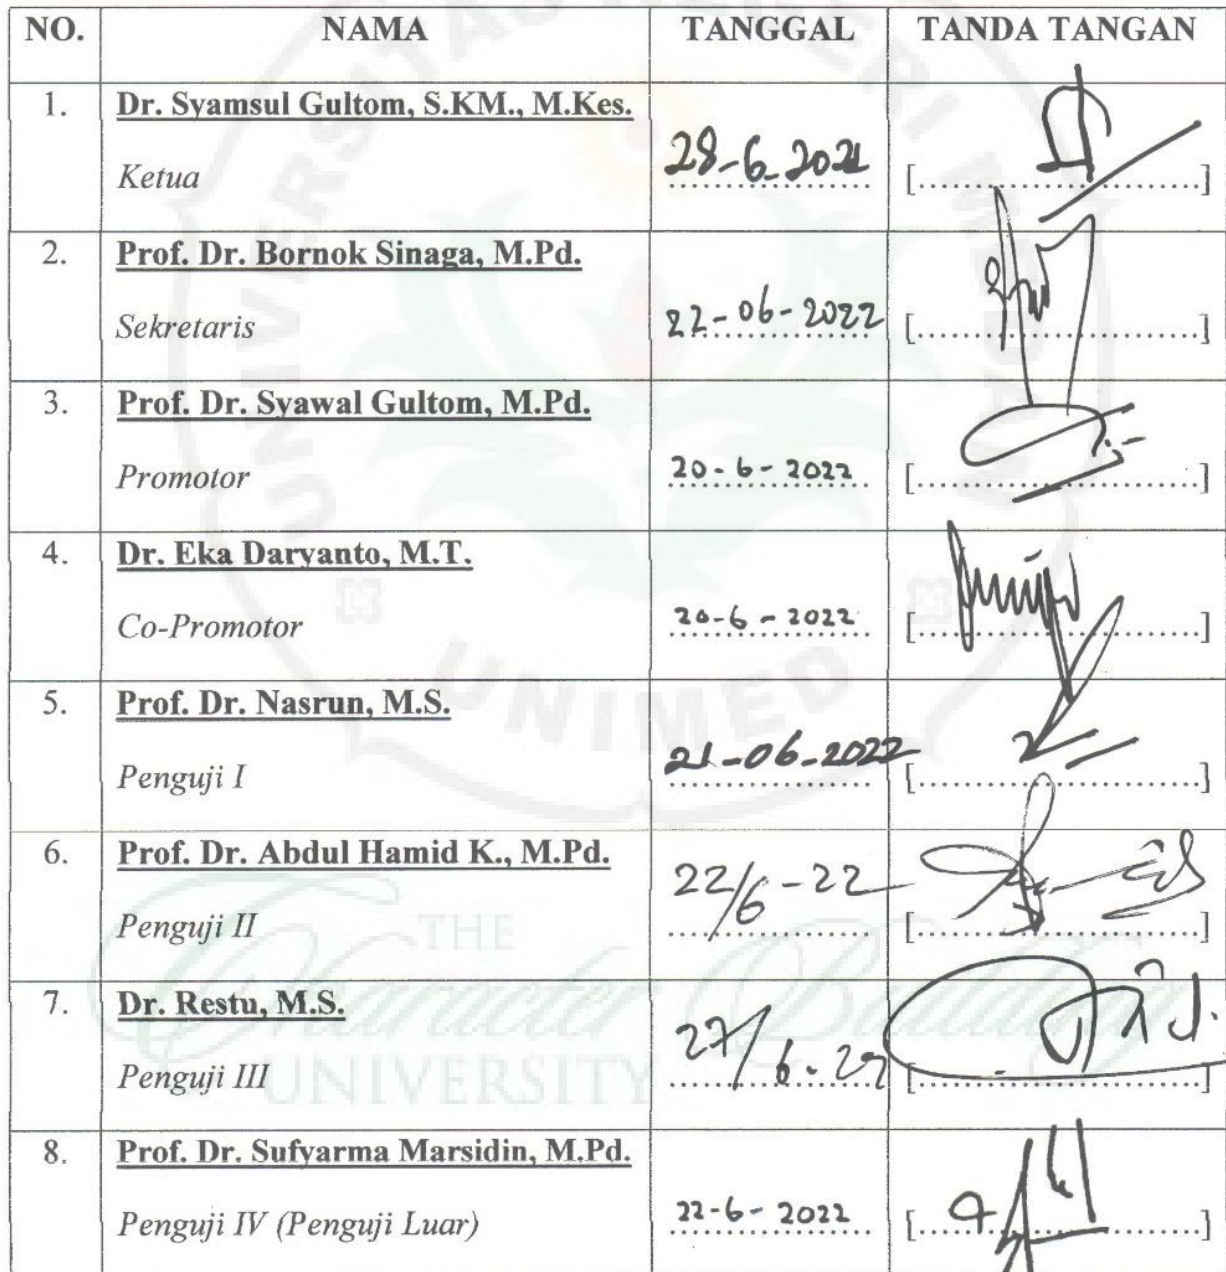 NO. NAMA TANGGAL TANDA TANGAN
1. Dr. Syamsul Gultom, S.KM., M.Kes.
Ketua 28-6-2022 [....................]
2. Prof. Dr. Bornok Sinaga, M.Pd.
Sekretaris 22-06-2022 [....................]
3. Prof. Dr. Syawal Gultom, M.Pd.
Promotor 20-6-2022 [....................]
4. Dr. Eka Daryanto, M.T.
Co-Promotor 20-6-2022 [....................]
5. Prof. Dr. Nasrun, M.S.
Penguji I 21-06-2022 [....................]
6. Prof. Dr. Abdul Hamid K., M.Pd.
Penguji II 22/6-22 [....................]
7. Dr. Restu, M.S.
Penguji III 27/6-22 [....................]
8. Prof. Dr. Sufyarma Marsidin, M.Pd.
Penguji IV (Penguji Luar) 22-6-2022 [....................]
UNIVERSITAS NEGERI MEDAN
UNIMED
THE
Character Building
UNIVERSITY